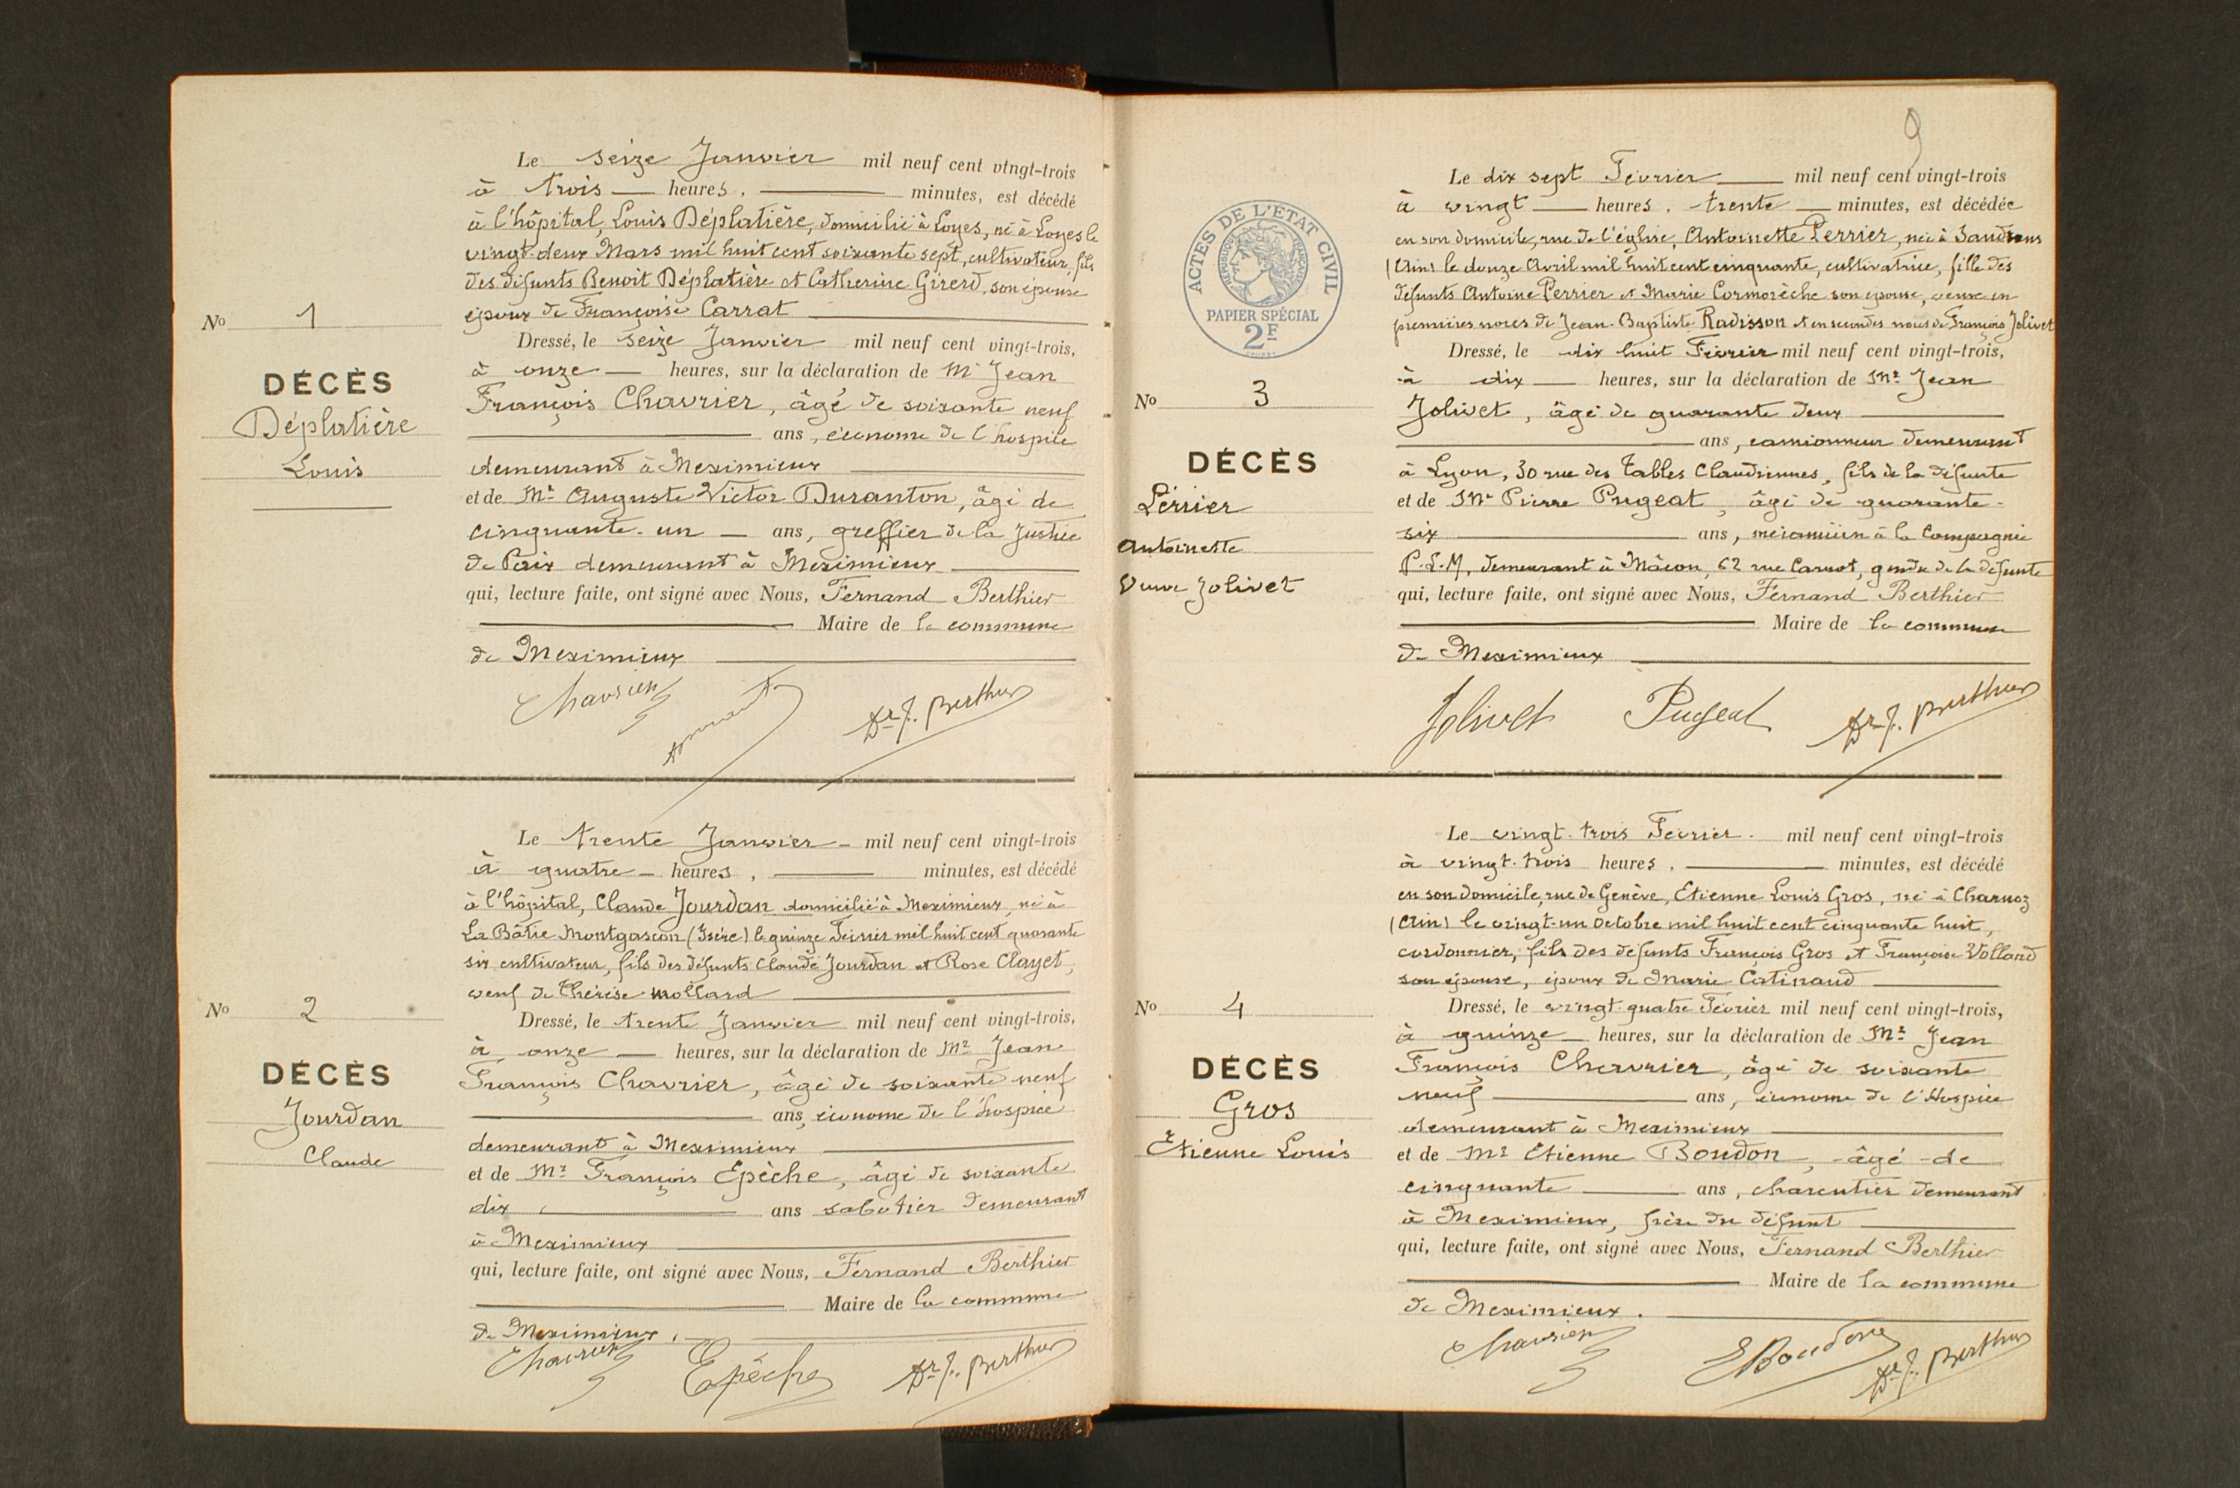 Le seize Janvier mil neuf cent vingt-trois
à trois heures, minutes, est décédé
à l'hôpital, Louis Déplatière, domicilié à Loyes, né à Loyes le
vingt-deux Mars mil huit cent soixante sept, cultivateur, fils
des défunts Benoit Déplatière et Catherine Girerd, son épouse
époux de Françoise Carrat
Dressé, le seize Janvier mil neuf cent vingt-trois,
à onze heures, sur la déclaration de Mr Jean
François Chavrier, âgé de soixante neuf
ans, économe de l'hospice
demeurant à Meximieux
et de Mr Auguste Victor Duranton, âgé de
cinquante-un ans, greffier de la Justice
de Paix demeurant à Meximieux
qui, lecture faite, ont signé avec Nous, Fernand Berthier
Maire de la commune
de Meximieux
Chavrier Dr F. Berthier
No 1
DÉCÈS
Déplatière
Louis
Le trente Janvier mil neuf cent vingt-trois
à quatre heures, minutes, est décédé
à l'hôpital, Claude Jourdan domicilié à Meximieux, né à
La Bâtie Montgascon (Isère) le quinze Février mil huit cent quarante
six cultivateur, fils des défunts Claude Jourdan et Rose Clayet,
veuf de Thérèse Mollard
Dressé, le trente Janvier mil neuf cent vingt-trois,
à onze heures, sur la déclaration de Mr Jean
François Chavrier, âgé de soixante neuf
ans, économe de l'hospice
demeurant à Meximieux
et de Mr François Epèche, âgé de soixante
dix ans sabotier demeurant
à Meximieux
qui, lecture faite, ont signé avec Nous, Fernand Berthier
Maire de la commune
de Meximieux.
Chavrier Epèche Dr F. Berthier
No 2
DÉCÈS
Jourdan
Claude
9
ACTES DE L'ÉTAT CIVIL
RÉPUBLIQUE FRANÇAISE
PAPIER SPÉCIAL
2F
Le dix sept Février mil neuf cent vingt-trois
à vingt heures, trente minutes, est décédée
en son domicile, rue de l'église, Antoinette Perrier, née à Sandrans
(Ain) le douze Avril mil huit cent cinquante, cultivatrice, fille des
défunts Antoine Perrier et Marie Cormorèche son épouse, veuve en
premières noces de Jean-Baptiste Radisson et en secondes noces de François Jolivet
Dressé, le dix huit Février mil neuf cent vingt-trois,
à dix heures, sur la déclaration de Mr Jean
Jolivet, âgé de quarante deux
ans, camionneur demeurant
à Lyon, 30 rue des Tables Claudiennes, fils de la défunte
et de Mr Pierre Pugeat, âgé de quarante-
six ans, mécanicien à la Compagnie
P.L.M, demeurant à Mâcon, 62 rue Carnot, gendre de la défunte
qui, lecture faite, ont signé avec Nous, Fernand Berthier
Maire de la commune
de Meximieux
Jolivet Pugeat Dr F. Berthier
No 3
DÉCÈS
Périer
Antoinette
Veuve Jolivet
Le vingt-trois Février. mil neuf cent vingt-trois
à vingt-trois heures, minutes, est décédé
en son domicile, rue de Genève, Etienne Louis Gros, né à Charnoz
(Ain) le vingt-un octobre mil huit cent cinquante huit,
cordonnier, fils des défunts François Gros et Françoise Volland
son épouse, époux de Marie Catinaud
Dressé, le vingt quatre Février mil neuf cent vingt-trois,
à quinze heures, sur la déclaration de Mr Jean
François Chavrier, âgé de soixante
neuf ans, économe de l'Hospice
demeurant à Meximieux
et de Mr Etienne Boudon, âgé de
cinquante ans, charcutier demeurant
à Meximieux, frère du défunt
qui, lecture faite, ont signé avec Nous, Fernand Berthier
Maire de la commune
de Meximieux.
Chavrier E Boudon Dr F. Berthier
No 4
DÉCÈS
Gros
Etienne Louis